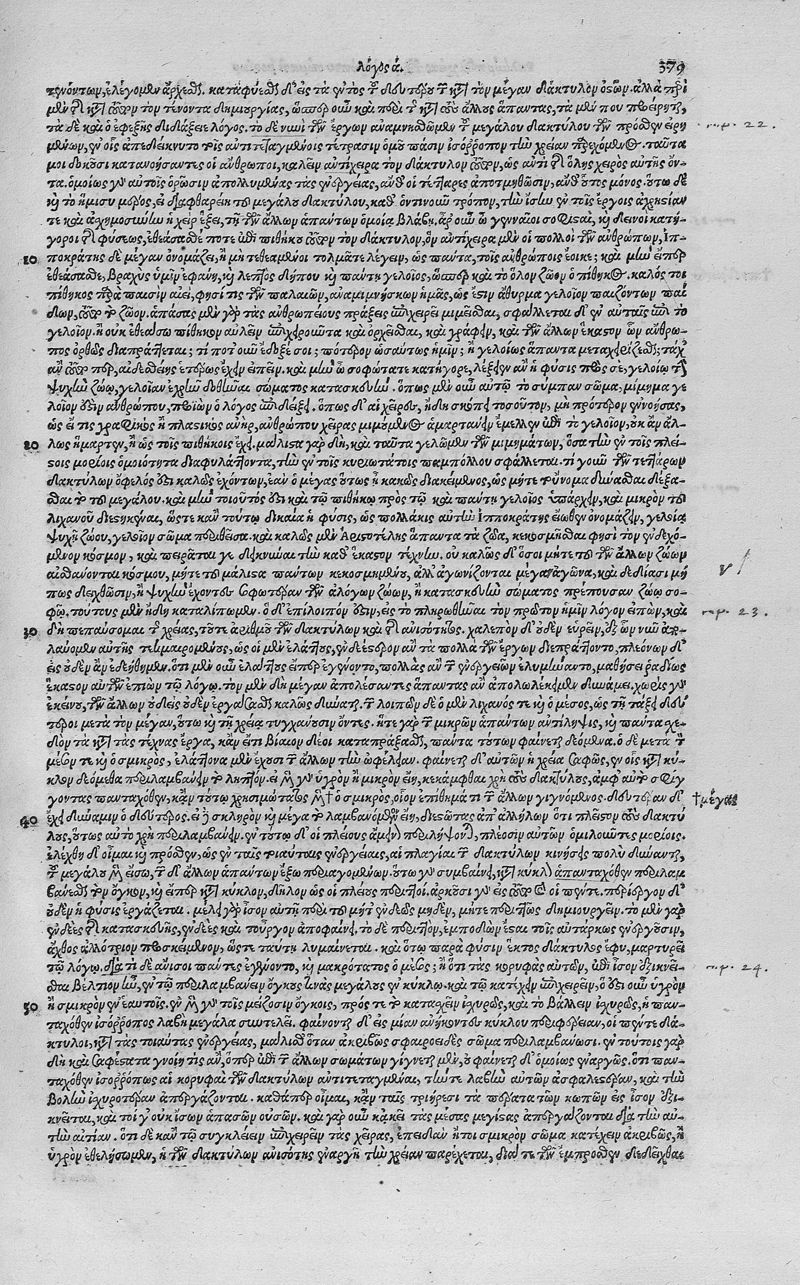 λόγος α. 379
τεινόντων, ἐλέγομεν ἄρχεσθαι. καταφύεσθαι δ' εἰς τὰ ἐντὸς τοῦ δευτέρου τῶν κατὰ τὸν μέγαν δάκτυλον ὀστῶν. ἀλλὰ περὶ
μὲν τῆς κατὰ τοῦτον τὸν τένοντα δημιουργίας, ὥσπερ οὖν καὶ περὶ τῆς κατὰ τοὺς ἄλλους ἅπαντας, τὰ μέν που προείρηται,
τὰ δὲ καὶ ὁ ἐφεξῆς διδάξει λόγος. τὸ δὲ νῦν τῶν ἔργων ἀναμνησθῶμεν τοῦ μεγάλου δακτύλου τῶν πρόσθεν εἰρη
μένων, ἐν οἷς ἀπεδείκνυτο τοῖς ἀντιτεταγμένοις τέτρασιν ὁμοῦ πᾶσιν ἰσόρροπον τὴν χρείαν παρεχόμενος. ταῦτά
μοι δοκοῦσι κατανοήσαντες οἱ ἄνθρωποι, καλεῖν ἀντίχειρα τὸν δάκτυλον τοῦτον, ὡς ἀντὶ τῆς ὅλης χειρὸς αὐτῆς ὄν
τα. ὁμοίως γὰρ αὐτοῖς ὁρῶσιν ἀπολλυμένας τὰς ἐνεργείας, ἄνθ' οἱ τέτταρες ἀποτμηθῶσιν, ἄνθ' οὗτος μόνος. οὕτω δὲ
καὶ τὸ ἥμισυ μόρος, εἰ διαφθαρείη τοῦ μεγάλου δακτύλου, καθ' ὁντινοῦν τρόπον, τὴν ἴσην ἐν τοῖς ἔργοις ἀχρηστίαν
τε καὶ ἀσχημοσύνην ἡ χεὶρ ἕξει, τῇ τῶν ἄλλων ἁπάντων ὁμοίᾳ βλάβῃ. ἆρ' οὖν ὦ γενναῖοι σοφισταὶ, καὶ δεινοὶ κατή
γοροι τῆς φύσεως, ἐθεάσασθέ ποτε ἐπὶ πιθήκου τοῦτον τὸν δάκτυλον, ὃν ἀντίχειρα μὲν οἱ πολλοὶ τῶν ἀνθρώπων, Ἱπ-
10 ποκράτης δὲ μέγαν ὀνομάζει, ἢ μὴ τεθεαμένοι τολμᾶτε λέγειν, ὡς πάντα, τοῖς ἀνθρώποις ἔοικε; καὶ μὴν εἴπερ
ἐθεάσασθε, βραχὺς ὑμῖν ἐφάνη, καὶ λεπτὸς δήπου καὶ πάντῃ γελοῖος, ὥσπερ καὶ τὸ ὅλον ζῶον ὁ πίθηκος. καλός τοι
πίθηκος παρὰ παισὶν αἰεὶ, φησί τις τῶν παλαιῶν, ἀναμιμνήσκων ἡμᾶς, ὡς ἔστιν ἄθυρμα γελοῖον παιζόντων παί
δων, τοῦτο τὸ ζῶον. ἁπάσας μὲν γὰρ τὰς ἀνθρωπείους πράξεις ἐπιχειρεῖ μιμεῖσθαι, σφάλλεται δ' ἐν αὐταῖς ἐπὶ τὸ
γελοῖον. ἢ οὐκ ἐθεάσω πίθηκον αὐλεῖν ἐπιχειροῦντα καὶ ὀρχεῖσθαι, καὶ γράφειν, καὶ τῶν ἄλλων ἕκαστον ὧν ἄνθρω-
πος ὀρθῶς διαπράττεται; τί ποτ' οὖν ἔδοξέ σοι; πότερον ὡσαύτως ἡμῖν; ἢ γελοίως ἅπαντα μεταχειρίζεσθαι; τάχ'
ψυχὴν ζώῳ, γελοίαν ἐχρῆν δοθῆναι σώματος κατασκευήν. ὅπως μὲν οὖν αὐτῷ τὸ σύμπαν σῶμα, μίμημα γε
λοῖόν ἐστιν ἀνθρώπου, προϊὼν ὁ λόγος ἐπιδείξει. ὅπως δ' αἱ χεῖρες, ἤδη σκόπει τοσοῦτον, μοι πρότερον ἐννοήσας,
ὡς εἴ τις γραφικὸς ἢ πλαστικὸς ἀνὴρ, ἀνθρώπου χεῖρας μιμούμενος ἁμαρτάνειν ἔμελλεν ἐπὶ τὸ γελοῖον, οὐκ ἂν ἄλ-
20 λως ἥμαρτεν, ἢ ὡς τοῖς πιθήκοις ἔχει. μάλιστα γὰρ δὴ, καὶ ταῦτα γελῶμεν τῶν μιμημάτων, ὅσα τὴν ἐν τοῖς πλεί-
στοις μορίοις ὁμοιότητα διαφυλάττοντα, τὴν ἐν τοῖς κυριωτάτοις παμπόλλου σφάλλεται. τί γοῦν τῶν τεττάρων
δακτύλων ὄφελος ἐστὶ καλῶς ἐχόντων, ἐὰν ὁ μέγας οὕτως ᾖ κακῶς διακείμενος, ὡς μήτε τοὔνομα δύνασθαι δέξα-
σθαι τὸ τοῦ μεγάλου. καὶ μὴν τοιοῦτός ἐστι καὶ τῷ πιθήκῳ πρὸς τῷ καὶ πάντῃ γελοῖος ὑπάρχειν, καὶ μικρὸν τοῦ
λιχανοῦ διεστηκέναι, ὥστε κἂν τούτῳ δικαία ἡ φύσις, ὡς πολλάκις αὐτὴν Ἱπποκράτης εἴωθεν ὀνομάζειν, γελοίᾳ
ψυχῇ ζώου, γελοῖον σῶμα περιθεῖσα. καὶ καλῶς μὲν Ἀριστοτέλης ἅπαντα τὰ ζῶα, κεκοσμῆσθαι φησὶ τὸν ἐνδεχό-
μενον κόσμον, καὶ πειρᾶταί γε δεικνύναι τὴν καθ' ἕκαστον τέχνην. οὐ καλῶς δ' ὅσοι μήτε τοῦ τῶν ἄλλων ζώων
αἰσθάνονται κόσμου, μήτε τοῦ μάλιστα πάντων κεκοσμημένου, ἀλλ' ἀγωνίζονται μέγαν ἀγῶνα, καὶ δεδίασι μή
πως δειχθῶσιν, ἢ ψυχὴν ἔχοντες σοφωτέραν τῶν ἀλόγων ζώων, ἢ κατασκευὴν σώματος πρέπουσαν ζώῳ σο-
φῷ. τούτους μὲν ἤδη καταλίπωμεν. ὃ δ' ἐπίλοιπόν ἐστιν, εἰς τὸ πληρωθῆναι τὸν πρῶτον ἡμῖν λόγον εἰπὼν, καὶ
30 δὴ πεπαύσομαι τῆς χρείας, τοῦ τε ἀριθμοῦ τῶν δακτύλων καὶ τῆς ἀνισότητος. χαλεπὸν δ' οὐδὲν εὑρεῖν, ἐξ ὧν νῦν ἀπο-
λαύομεν αὐτῆς τεκμαιρομένους, ὡς εἰ μὲν ἐλάττους, ἐνδεέστερον ἂν τὰ πολλὰ τῶν ἔργων διεπράττοντο, πλεόνων δ'
εἰς οὐδὲν ἂν ἐδεήθημεν. ὅτι μὲν οὖν ἐλάττους εἴπερ ἐγένοντο, πολλὰς ἂν τῶν ἐνεργειῶν ἐλυμήναντο, μαθήσει ῥᾳδίως
ἕκαστον αὐτῶν ἐπιὼν τῷ λόγῳ. τὸν μὲν δὴ μέγαν ἀπολέσαντες ἅπαντας ἂν ἀπολωλέκειμεν δυνάμει. χωρὶς γὰρ
ἐκείνου, τῶν ἄλλων οὐδεὶς οὐδὲν ἐργάσασθαι καλῶς δύναται. τῶν λοιπῶν δὲ ὁ μὲν λιχανός τε καὶ ὁ μέσος, ὡς τῇ τάξει δεύ
τεροι μετὰ τὸν μέγαν, οὕτω καὶ τῇ χρείᾳ τυγχάνουσιν ὄντες. ἥ τε γὰρ τῶν μικρῶν ἁπάντων ἀντίληψις, καὶ πάντα σχε-
δὸν τὰ κατὰ τὰς τέχνας ἔργα, κἂν εἴ τι βίαιον δέοι καταπράξασθαι, πάντα τούτων φαίνεται δεόμενα. ὁ δὲ μετὰ τὸν
μέσον τε καὶ ὁ σμικρὸς, ἐλάττονα μὲν ἔχουσι τῶν ἄλλων τὴν ὠφέλειαν. φαίνεται δ' αὐτῶν ἡ χρεία σαφῶς, ἐν οἷς κατὰ κύ-
κλον δεόμεθα περιλαμβάνειν τὸ ληπτόν. εἰ μὲν γὰρ ὑγρὸν ἢ μικρὸν εἴη, κεκάμφθαι χρὴ τοὺς δακτύλους, ἀμφ' αὐτὸ σφίγ
γοντας πανταχόθεν, κἂν τούτῳ χρησιμώτατος μὲν † ὁ σμικρὸς, οἷον ἐπίθημά τι τῶν ἄλλων γιγνόμενος. δευτέραν δ' † μέγας
40 ἔχει δύναμιν ὁ δεύτερος. εἰ δὲ σκληρὸν καὶ μέγα τὸ λαμβανόμενον εἴη, διεστῶτας ἀπ' ἀλλήλων ὅτι πλεῖστον τοὺς δακτύ
λους, οὕτως αὐτὸ χρὴ περιλαμβάνειν. ἐν τούτῳ δ' οἱ πλείους ἄμεινον περιλήψονται, πλέοσιν αὐτῶν ὁμιλοῦντες μορίοις.
ἐλέχθη δ' οἶμαι καὶ πρόσθεν, ὡς ἐν ταῖς τοιαύταις ἐνεργείαις, αἱ πλάγιαι τῶν δακτύλων κινήσεις πολὺ δύνανται,
τοῦ μεγάλου μὲν εἴσω, τῶν δ' ἄλλων ἁπάντων ἔξω περιαγομένων. οὕτω γὰρ συμβαίνει, κατὰ κύκλον ἁπανταχόθεν περιλαμ
βάνεσθαι τὸν ὄγκον, καὶ εἴπερ κατὰ κύκλον, δῆλον ὡς οἱ πλείους περιττοί. ἀρκοῦσι γὰρ εἰς τοῦτο καὶ οἱ πέντε. περίεργον δ'
οὐδὲν ἡ φύσις ἐργάζεται. μέλει γὰρ ἴσον αὐτῇ περὶ τοῦ μήτ' ἐνδεῶς μηδὲν, μήτε περιττῶς δημιουργεῖν. τὸ μὲν γὰρ
ἐνδεὲς τῆς κατασκευῆς, ἐνδεὲς καὶ τοὖργον ἀποφαίνει. τὸ δὲ περιττὸν, ἐμποδὼν ἵσταται τοῖς αὐτάρκως ἐνεργοῦσιν,
ἄχθος ἀλλότριον προσκείμενον, ὥστε ταύτῃ λυμαίνεται. καὶ ὅτῳ παρὰ φύσιν ἕκτος δάκτυλος ἔφυ, μαρτυρεῖ
τῷ λόγῳ. διὰ τί δὲ ἄνισοι πάντες ἐγένοντο, καὶ μακρότατος ὁ μέσος; ἢ ὅτι τὰς κορυφὰς αὐτῶν, ἐπὶ ἴσον ἐξικνεῖ-
σθαι βέλτιον ἦν, ἐν τῷ περιλαμβάνειν ὄγκους τινὰς μεγάλους ἐν κύκλῳ. καὶ τῷ κατέχειν ἐπιχειρεῖν, ὅ ἐστιν οὖν ὑγρὸν
50 ἢ σμικρὸν ἐν ἑαυτοῖς. ἐν μὲν γὰρ τοῖς μείζοσιν ὄγκοις, πρός τε τὸ κατασχεῖν ἰσχυρῶς, καὶ τὸ βάλλειν ἰσχυρῶς, ἡ παν-
ταχόθεν ἰσόρροπος λαβὴ μεγάλα συντελεῖ. φαίνονται δ' εἰς μίαν ἀνήκοντες κύκλου περιφέρειαν, οἱ πέντε δά-
κτυλοι, κατὰ τὰς τοιαύτας ἐνεργείας, μάλισθ' ὅταν ἀκριβῶς σφαιροειδὲς σῶμα περιλαμβάνωσι. ἐν τούτοις γὰρ
δὴ καὶ σαφέστατα γνοίη τις ἂν, ὅπερ ἐπὶ τῶν ἄλλων σωμάτων γίγνεται μὲν, οὐ φαίνεται δ' ὁμοίως ἐναργῶς. ὅτι παν-
ταχόθεν ἰσορρόπως αἱ κορυφαὶ τῶν δακτύλων ἀντιτεταγμέναι, τήν τε λαβὴν αὐτῶν ἀσφαλεστέραν, καὶ τὴν
βολὴν ἰσχυροτέραν ἀπεργάζονται. καθάπερ οἶμαι, κἂν ταῖς τριήρεσι τὰ πέρατα τῶν κωπῶν εἰς ἴσον ἐξι-
κνεῖται, καί τοί γ' οὐκ ἴσων ἁπασῶν οὐσῶν. καὶ γὰρ οὖν κἀκεῖ τὰς μέσας μεγίστας ἀπεργάζονται διὰ τὴν αὐ-
τὴν αἰτίαν. ὅτι δὲ κἀν τῷ συγκλείειν ἐπιχειρεῖν τὰς χεῖρας, ἐπειδὰν ἤτοι σμικρὸν σῶμα κατέχειν ἀκριβῶς, ἢ
ὑγρὸν ἐθελήσωμεν, ἡ τῶν δακτύλων ἀνισότης ἐναργῆ τὴν χρείαν παρέχεται, διά τε τῶν ἔμπροσθεν δεδεῖχθαι
22.
23.
24.